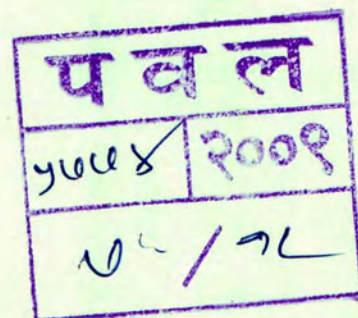 प व ल
५७७४ २००९
/ १८